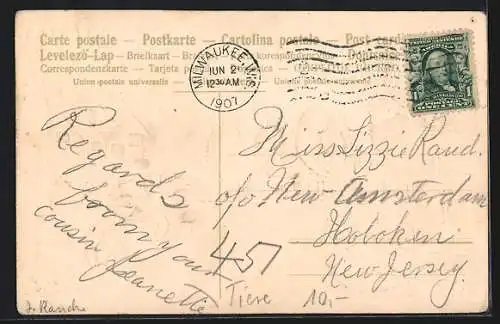 Carte postale — Postkarte — Cartolina postale — Post card
Levelező-Lap — Briefkaart — Brevkort
Correspondenzkarte — Tarjeta
Union postale universelle
MILWAUKEE, WIS.
JUN 2
12 30 AM
1907
1
Miss Lizzie Rand.
c/o New Amsterdam
Hoboken
New Jersey.
Regards
from your
cousin
Jeanette
457
Tiere 10.-